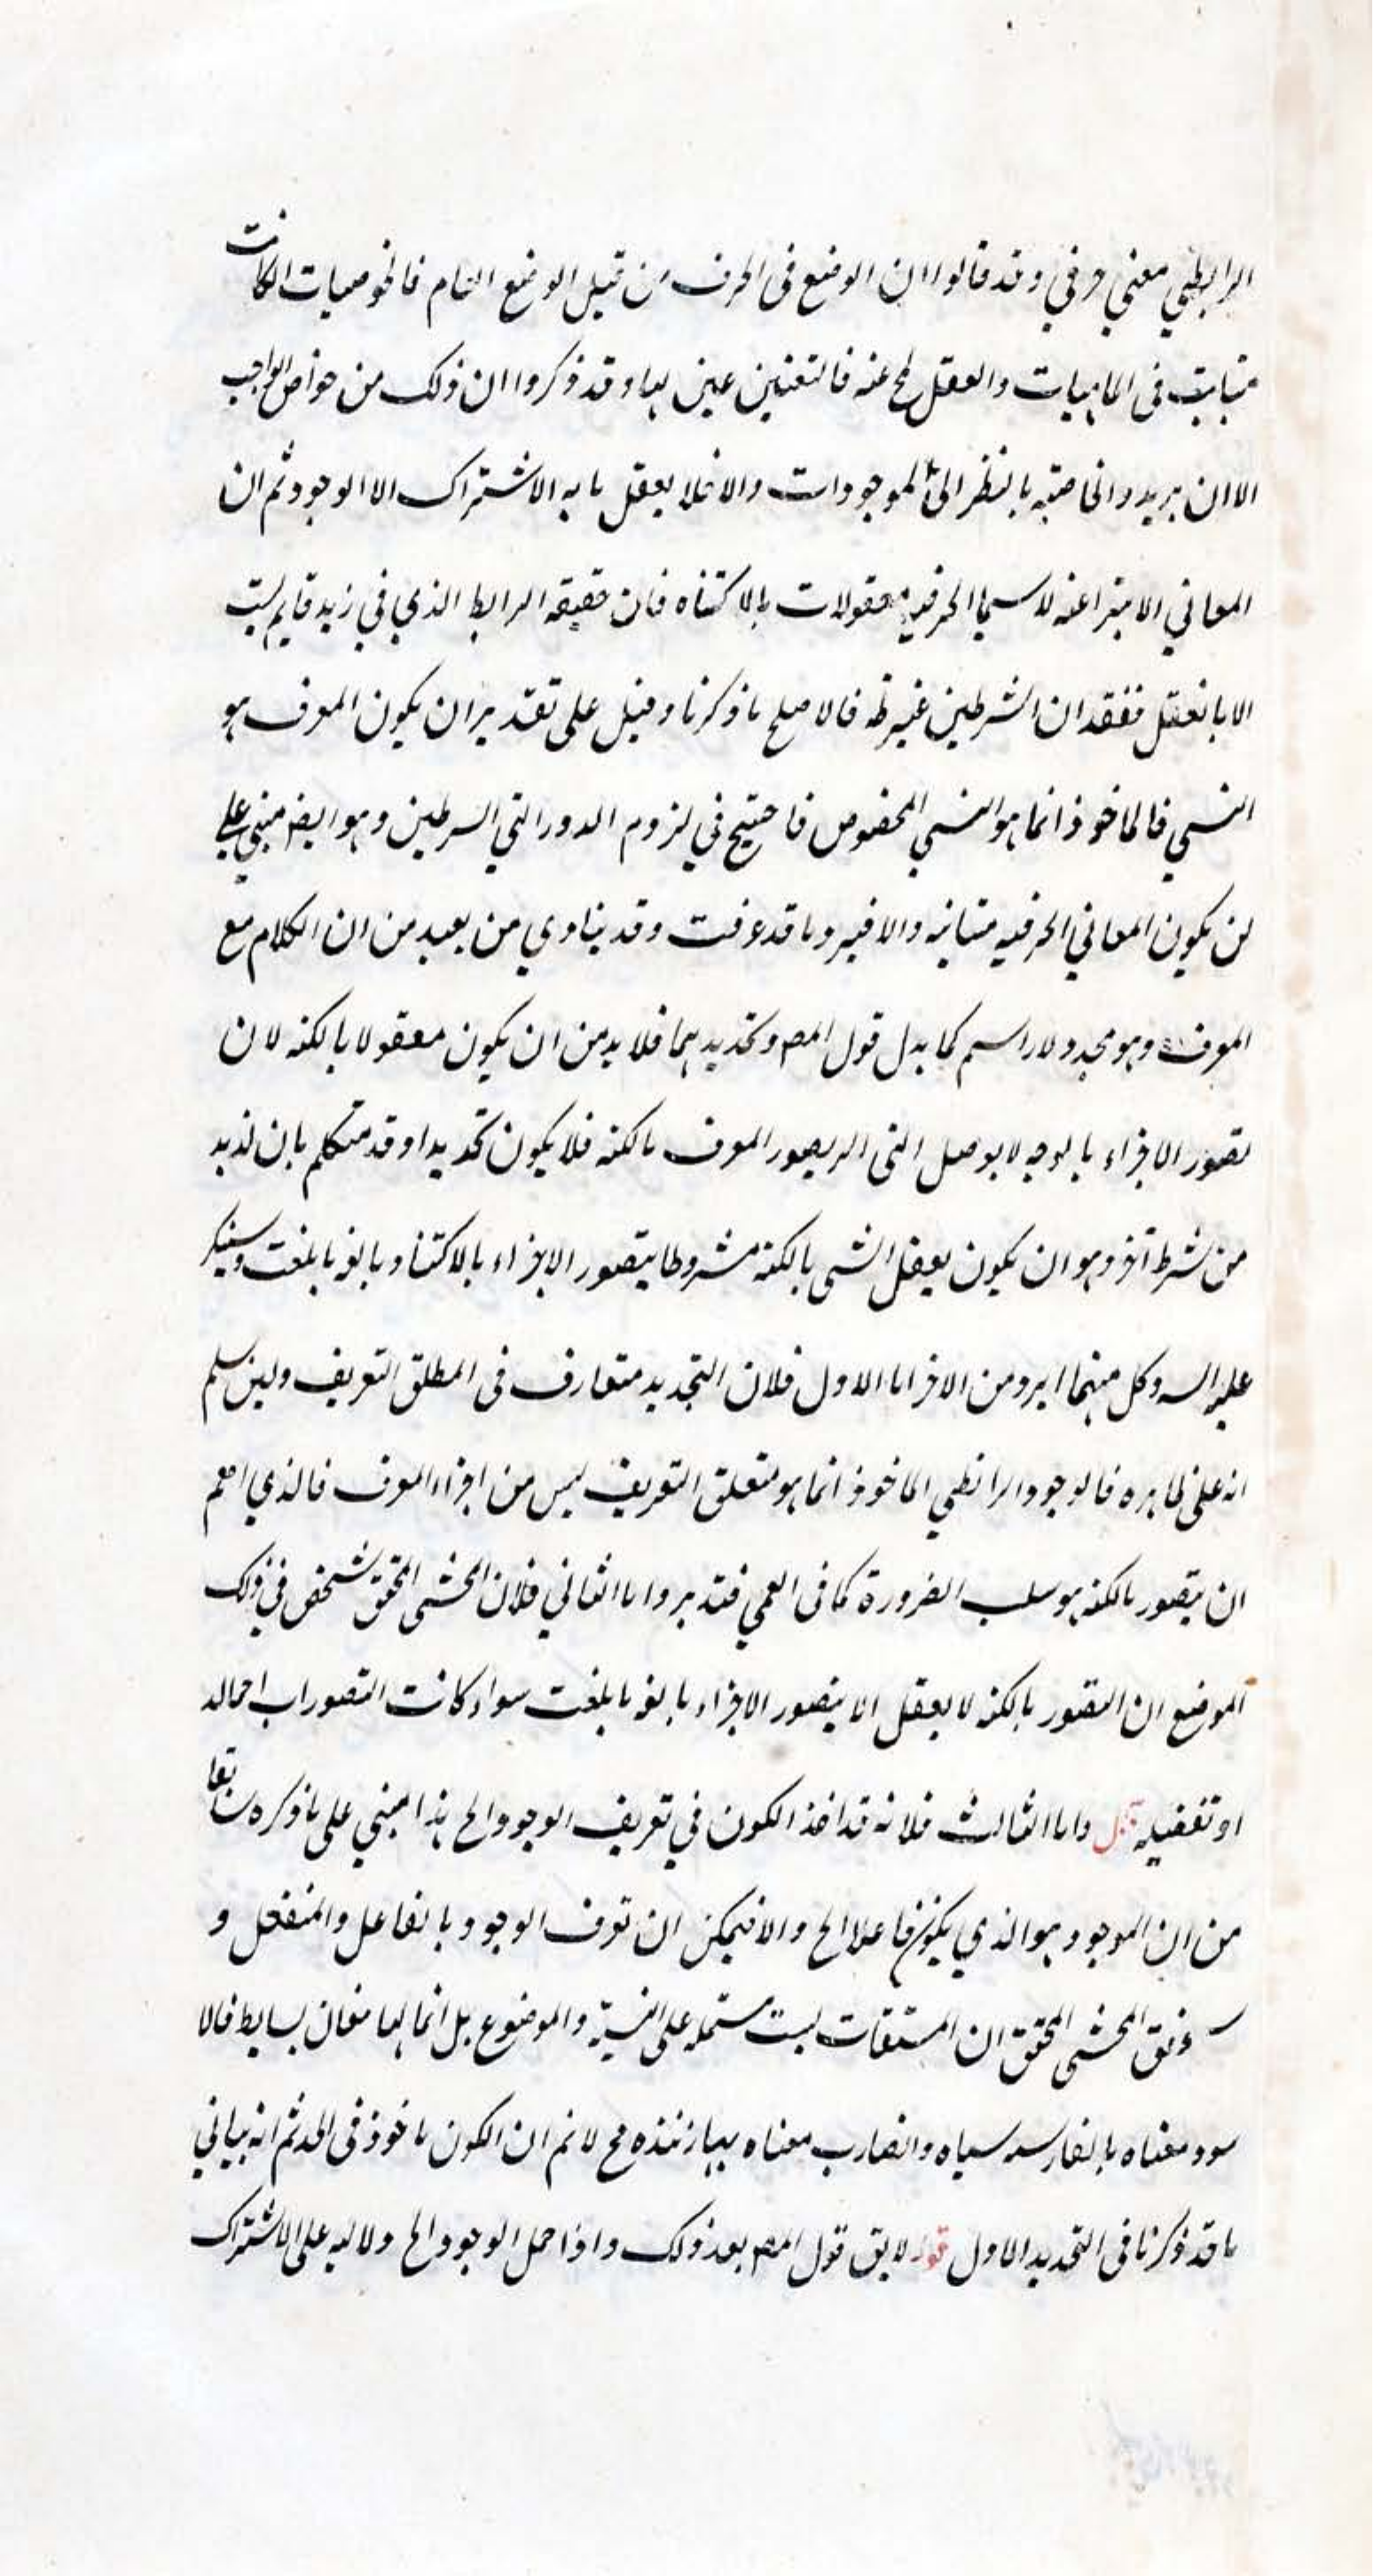 الرابطي معني حرفي وقد قالوا ان الوضع في الحرف من قبيل الوضع العام فالخوصيات اكانت
متباينة في الماهيات والعقل لمح عنه فالتعنين عين لها وقد ذكروا ان ذلك من خواص الواجب
الا ان يريدوا الخاصة بالنظر الى الموجودات والا فلا يعقل ما به الاشتراك الا الوجود ثم ان
المعاني الانتزاعية لا سيما الحرفية معقولات بالاكتناه فان حقيقة الرابط الذي في زيد قايم ليست
الا ما نعقل ففقدان الشرطين غير ظ فالاصلح ما ذكرنا وقيل على تقدير ان يكون المعرف هو
النسبي فالماخوذ انما هو النسبي المخصوص فاحتيج في لزوم الدور التي الشرطين وهو ايضا مبني علي
ان يكون المعاني الحرفيه متباينه والا فيرد ما قد عرفت وقد ينادي من بعيد من ان الكلام مع
المعرف وهو محدد لا راسم كما يدل قول المص وتحديدهما فلا بد من ان يكون معقولا بالكنه لان
تصور الاجزاء بالوجه لا يوصل الى تصور المعرف بالكنه فلا يكون تحديدا وقد متكلم بان لا بد
من شرط آخر وهو ان يكون يعقل الشي بالكنه مشروطا بتصور الاجزاء بالاكتناه بالغه ما بلغت وسيذكر
عليه السـ وكل منهما ابرد من الاخر اما الاول فلان التحديد متعارف في المطلق التعريف ولين سلم
انه على ظاهره فالوجود الرابطي الماخوذ انما هو متعلق التعريف ليس من اجزاء المعرف فالذي اهم
ان يتصور بالكنه هو سلب الضرورة كما في العمي فتدبر واما الثاني فلان المحشي المحقق شخص في ذلك
الموضع ان المتصور بالكنه لا يعقل الا بتصور الاجزاء بالغه ما بلغت سواء كانت التصورات اجماله
او تفصيليه واما الثالث فلانه قد اخذ الكون في تعريف الوجود الخ هذا مبني على ما ذكره سابقا
من ان الموجود هو الذي يكون فاعلا الخ والا فيمكن ان تعرف الوجود بالفاعل والمنفعل و
المحشي المحقق ان المشتقات ليست مشتملة على النسبة والموضوع بل انما لها معان بسايط فالا
سود معناه بالفارسه سياه والضارب معناه ببازننده مح لا نم ان الكون ماخوذ في الحد ثم انه ياتي
ما قد ذكرنا في التحديد الاول قوله لا يق قول المص بعد ذلك واذا حمل الوجود الخ ولا ليه على الاشتراك